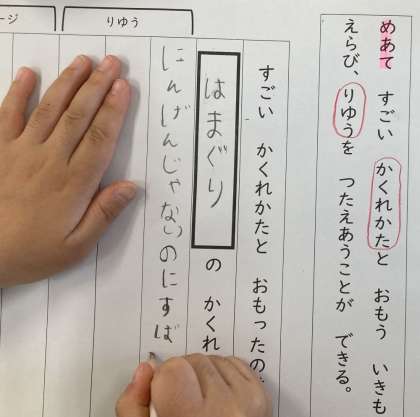 めあて すごい かくれかたと おもう いきも
えらび、りゆうを つたえあうことが できる。
すごい かくれかたと おもったの
はまぐり の かくれ
にんげんじゃないのにすば
りゆう
ージ